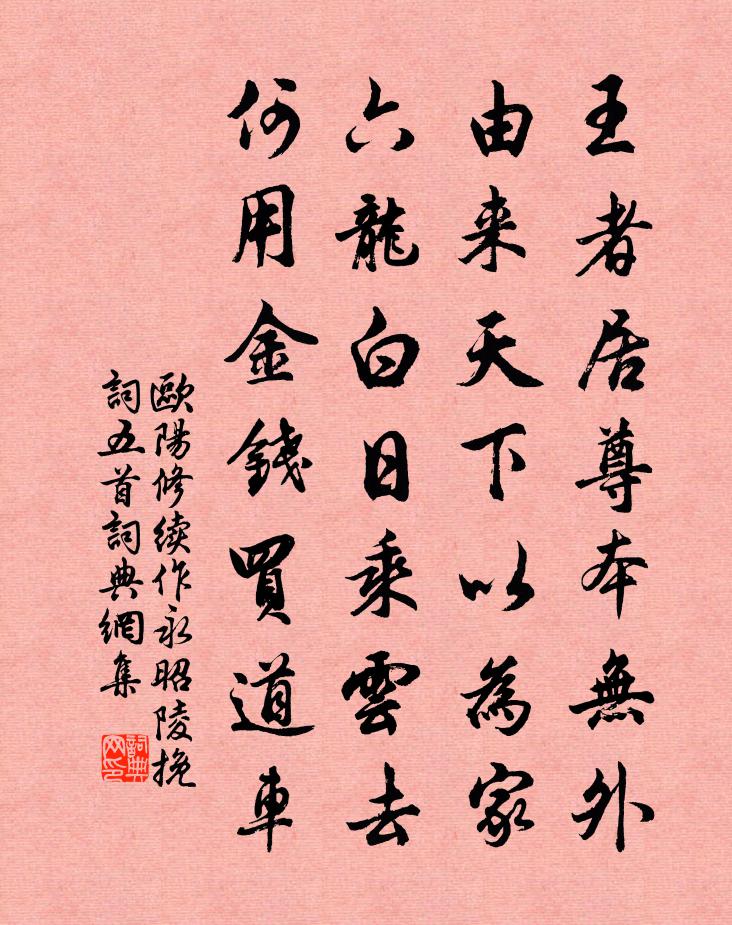 王者居尊本無外
由来天下以為家
六龍白日乘雲去
何用金錢買道車
歐陽修续作永昭陵挽
詞五首詞典網集
詞典
网印